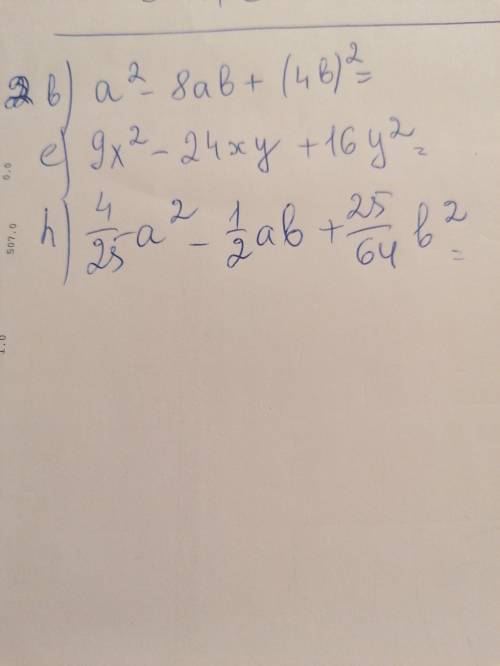 2 b) a² - 8ab + (4b)² =
e) 9x² - 24xy + 16y² =
h) 4/25 a² - 1/2 ab + 25/64 b² =
0.0
507.0
1.0